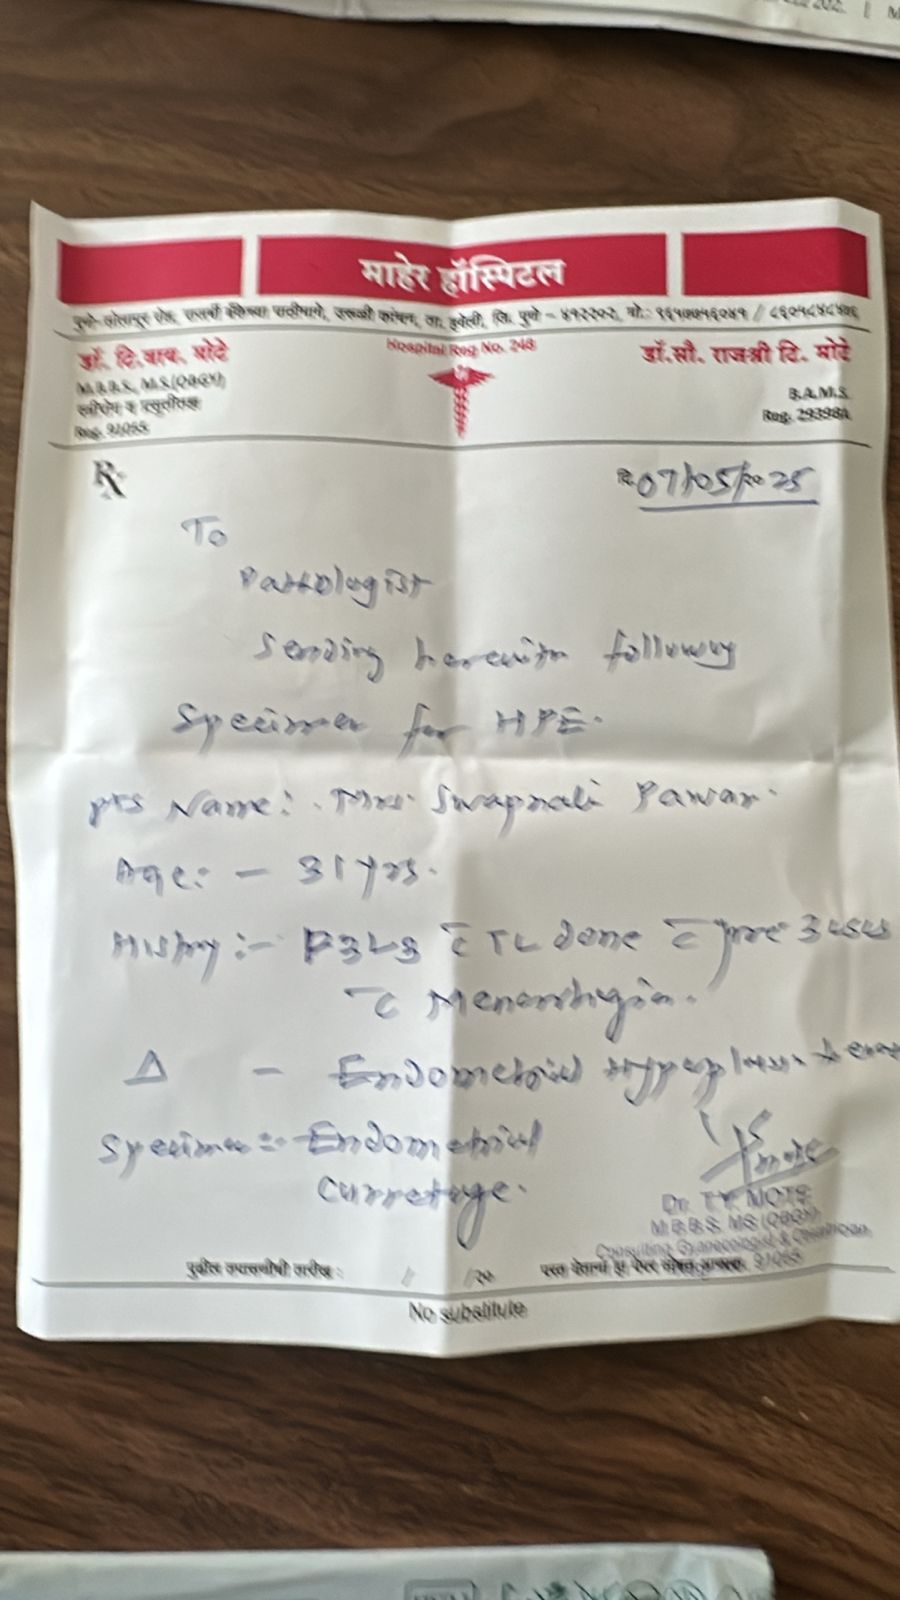 माहेर हॉस्पिटल
पुणे-सोलापूर रोड, पाठीमागे, उरुळी कांचन, ता. हवेली, जि. पुणे - ४१२२०२, मो.:
Hospital Reg No. 248
डॉ. टि.वाय. मोटे
M.B.B.S., M.S.(OBGY)
स्त्रीरोग व प्रसूतीतज्ञ
Reg. 91055
डॉ.सौ. राजश्री टि. मोटे
B.A.M.S.
Reg. 29398A
Rx
दि. 07/05/२०25
To
Pathologist
Sending herewith following
Specimen for HPE.
pts Name:- Mrs. Swapnali Pawar.
Age:- 31 yrs.
History:- P3L3 c̄ TL done c̄ pre 3LSCS
c̄ Menorrhagia.
Δ - Endometrial Hyperplasia
Specimen:- Endometrial
Curretage.
Dr. T.Y. MOTE
M.B.B.S. MS (OBGY)
Consulting Gynaecologist & Obstetrician
91055
पुढील तपासणीची तारीख : / /२०
No substitute